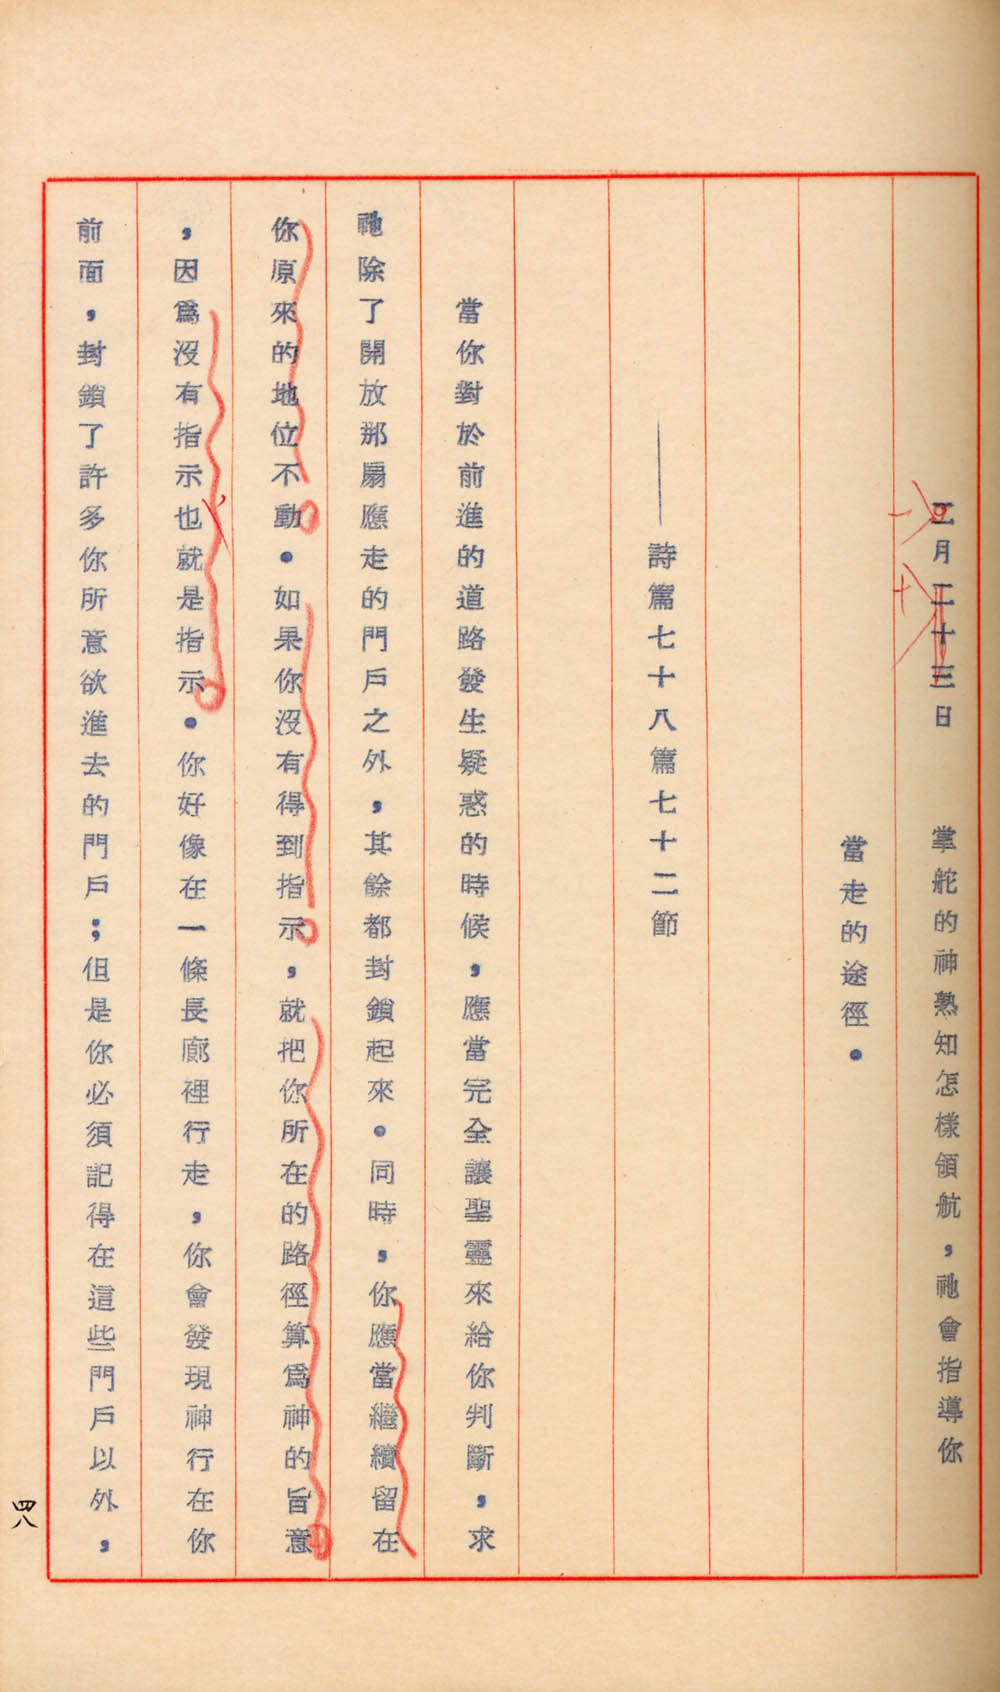 三月二十三日　掌舵的神熟知怎樣領航，祂會指導你
一
十
當走的途徑。
——詩篇七十八篇七十二節
當你對於前進的道路發生疑惑的時候，應當完全讓聖靈來給你判斷，求
祂除了開放那扇應走的門戶之外，其餘都封鎖起來。同時，你應當繼續留在
你原來的地位不動。如果你沒有得到指示，就把你所在的路徑算爲神的旨意
，因爲沒有指示也就是指示。你好像在一條長廊裡行走，你會發現神行在你
前面，封鎖了許多你所意欲進去的門戶；但是你必須記得在這些門戶以外，
四八